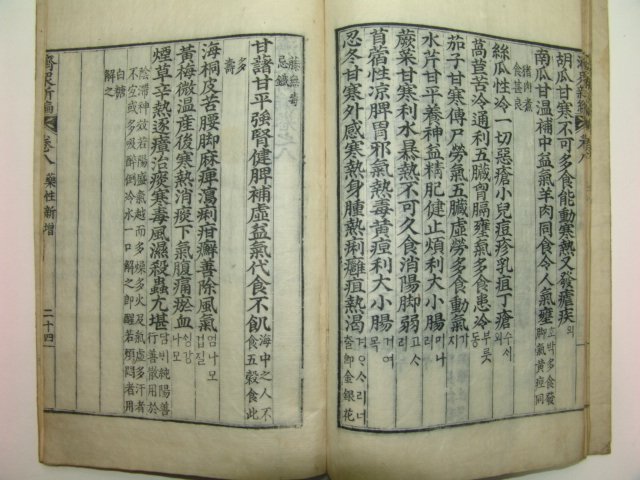 胡瓜甘寒不可多食能動寒熱又發瘧疾 외
南瓜甘温補中益氣羊肉同食令人氣壅 호박多食發
脚氣黃疸同
猪肉煮
食甚良
絲瓜性冷一切惡瘡小兒痘疹乳疽丁瘡 수세외
萵苣苦冷通利五臟胷膈壅氣多食患冷 부룻동
茄子甘寒傳尸勞氣五臟虛勞多食動氣 가지
水芹甘平養神益精肥健止煩利大小腸 미나리
蕨菜甘寒利水暴熱不可久食消陽脚弱 고사리
苜蓿性凉脾胃邪氣熱毒黃疸利大小腸 거여목
忍冬甘寒外感寒熱身腫熱痢癰疽熱渴 겨으사리너
출即金銀花
藤無毒
忌鐵
甘藷甘平強腎健脾補虛益氣代食不飢 海中之人不
食五穀食此
多
壽
海桐皮苦腰脚麻痺瀉痢疳癬善除風氣 엄나모
겁질
黃梅微温産後寒熱消痰下氣腹痛瘀血 싱강
나모
煙草辛熱逐瘴治痰寒毒風濕殺蟲亢堪 담ᄇᆡ純陽善
行善散用於
陰滯神效若陽盛氣越而多燥多火及氣虛多汗者
不宜或多吸醉倒冷水一口解之即醒若煩悶者用
白糖
解之
濟衆新編 卷八 藥性新增 二十四